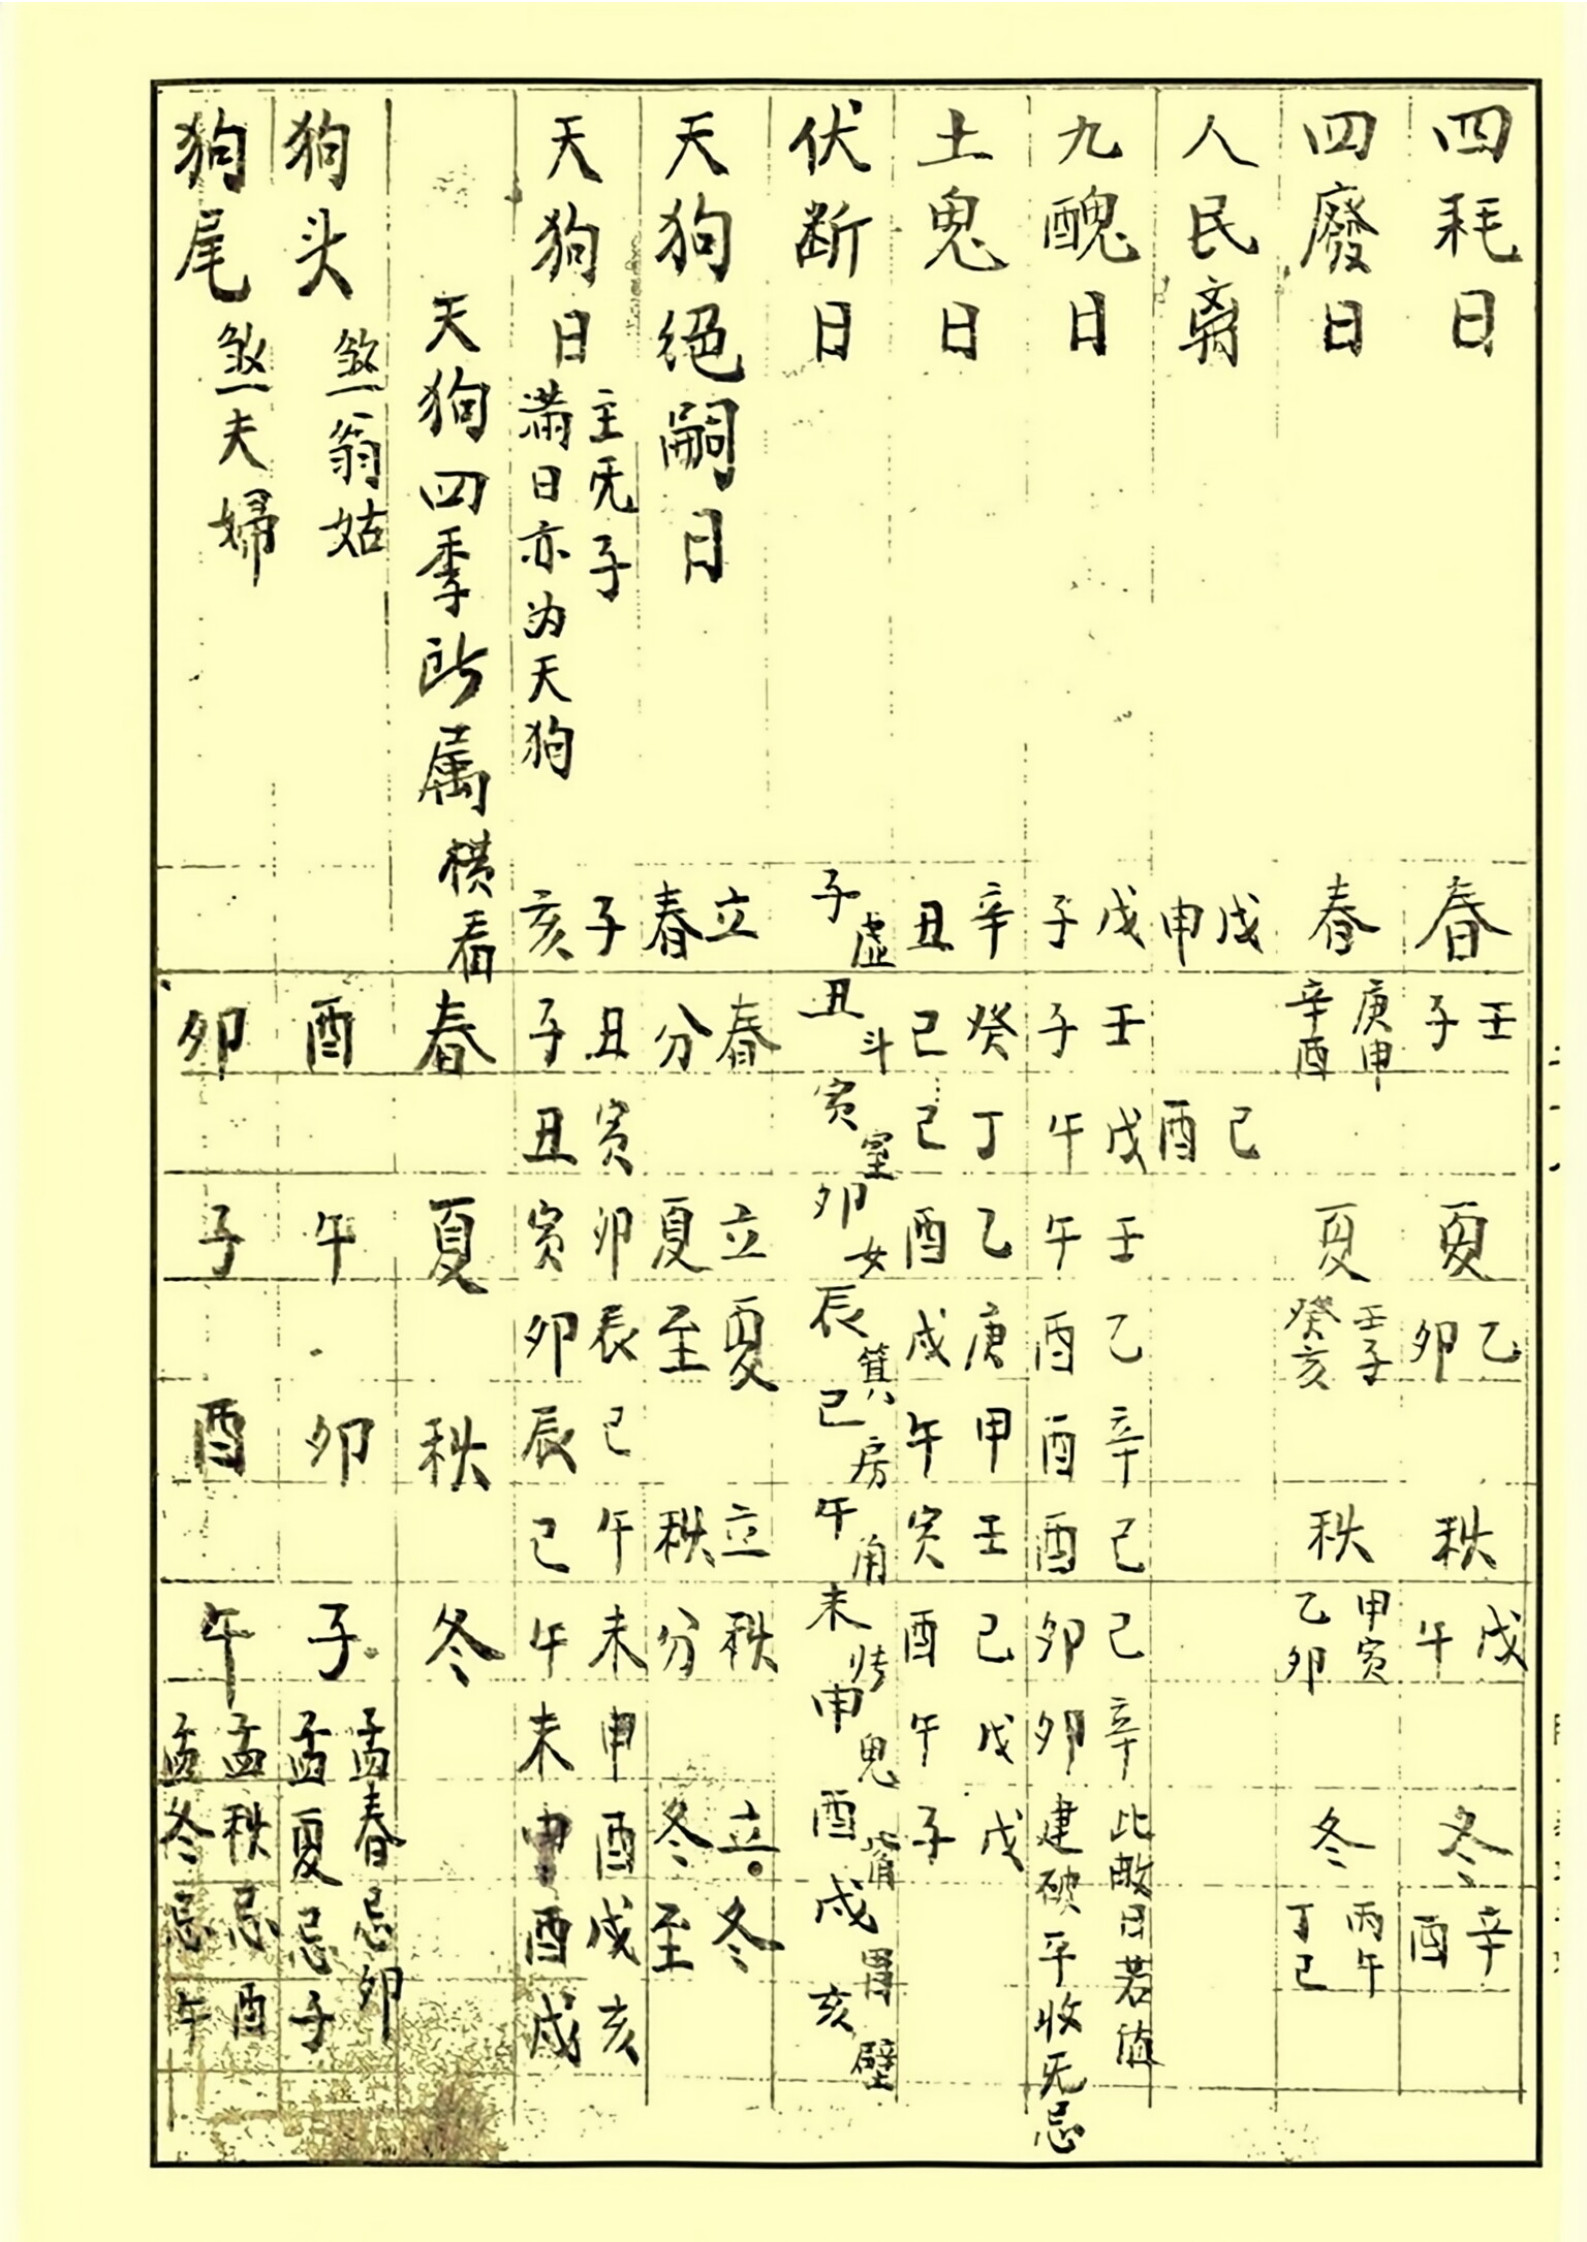 四耗日 春 壬子 夏 乙卯 秋 戊午 冬 辛酉
四廢日 春 庚申 辛酉 夏 壬子 癸亥 秋 甲寅 乙卯 冬 丙午 丁巳
人民离 戊申 己酉
九醜日 戊子 壬子 戊午 壬午 乙酉 辛酉 己酉 己卯 辛卯 此敵日若值建破平收旡忌
土鬼日 辛丑 癸巳 丁巳 乙酉 庚戌 甲午 壬寅 己酉 戊午 戊子
伏断日 子虚 丑斗 寅室 卯女 辰箕 巳房 午角 未张 申鬼 酉觜 戌胃 亥壁
天狗绝嗣日 立春 春分 立夏 夏至 立秋 秋分 立冬 冬至
天狗日 主旡子 满日亦为天狗 子 丑 寅 卯 辰 巳 午 未 申 酉 戌 亥
亥 子 丑 寅 卯 辰 巳 午 未 申 酉 戌
天狗四季所属横看 春 夏 秋 冬
狗头 煞翁姑 酉 午 卯 子 孟春忌卯 孟夏忌子
狗尾 煞夫婦 卯 子 酉 午 孟秋忌酉 孟冬忌午